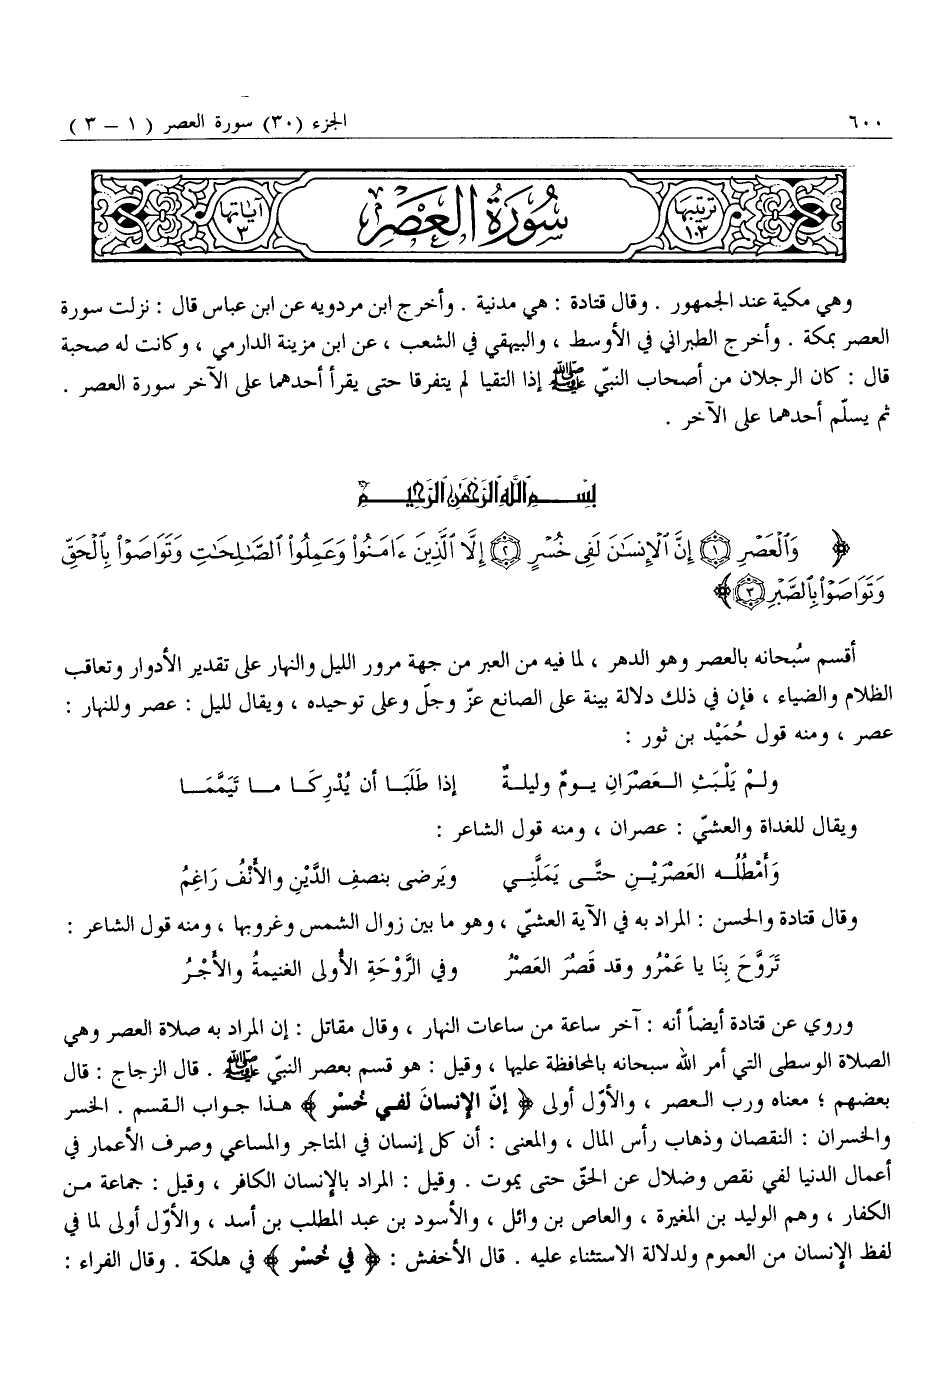 ٦٠٠
الجزء (٣٠) سورة العصر ( ١ – ٣ )
ترتيبها ١٠٣
سُورَةُ العَصْرِ
آياتها ٣
وهي مكية عند الجمهور . وقال قتادة : هي مدنية . وأخرج ابن مردويه عن ابن عباس قال : نزلت سورة
العصر بمكة . وأخرج الطبراني في الأوسط ، والبيهقي في الشعب ، عن ابن مزينة الدارمي ، وكانت له صحبة
قال : كان الرجلان من أصحاب النبيّ ﷺ إذا التقيا لم يتفرقا حتى يقرأ أحدهما على الآخر سورة العصر .
ثم يسلّم أحدهما على الآخر .
بِسْمِ اللَّهِ الرَّحْمَٰنِ الرَّحِيمِ
﴿ وَٱلْعَصْرِ ١ إِنَّ ٱلْإِنسَٰنَ لَفِى خُسْرٍ ٢ إِلَّا ٱلَّذِينَ ءَامَنُوا۟ وَعَمِلُوا۟ ٱلصَّٰلِحَٰتِ وَتَوَاصَوْا۟ بِٱلْحَقِّ
وَتَوَاصَوْا۟ بِٱلصَّبْرِ ٣ ﴾
أقسم سُبحانه بالعصر وهو الدهر ، لما فيه من العبر من جهة مرور الليل والنهار على تقدير الأدوار وتعاقب
الظلام والضياء ، فإن في ذلك دلالة بينة على الصانع عزّ وجلّ وعلى توحيده ، ويقال لليل : عصر وللنهار :
عصر ، ومنه قول حُمَيْد بن ثور :
ولمْ يَلْبَثِ العَصْرَانِ يومٌ وليلةٌ إذا طَلَبَا أن يُدْرِكَا ما تَيَمَّمَا
ويقال للغداة والعشيّ : عصران ، ومنه قول الشاعر :
وَأَمْطُلُه العَصْرَيْنِ حتَّى يَمَلَّنِي ويَرضى بنصفِ الدَّيْنِ والأَنْفُ رَاغِمُ
وقال قتادة والحسن : المراد به في الآية العشيّ ، وهو ما بين زوال الشمس وغروبها ، ومنه قول الشاعر :
تَرَوَّحَ بِنَا يا عَمْرُو وقد قَصُرَ العَصْرُ وفي الرَّوْحَةِ الأُولى الغنيمةُ والأَجْرُ
وروي عن قتادة أيضاً أنه : آخر ساعة من ساعات النهار ، وقال مقاتل : إن المراد به صلاة العصر وهي
الصلاة الوسطى التي أمر الله سبحانه بالمحافظة عليها ، وقيل : هو قسم بعصر النبيّ ﷺ . قال الزجاج : قال
بعضهم ؛ معناه ورب العصر ، والأوّل أولى ﴿ إنّ الإنسانَ لفي خُسْر ﴾ هذا جواب القسم . الخسر
والخسران : النقصان وذهاب رأس المال ، والمعنى : أن كل إنسان في المتاجر والمساعي وصرف الأعمار في
أعمال الدنيا لفي نقص وضلال عن الحقّ حتى يموت . وقيل : المراد بالإنسان الكافر ، وقيل : جماعة من
الكفار ، وهم الوليد بن المغيرة ، والعاص بن وائل ، والأسود بن عبد المطلب بن أسد ، والأوّل أولى لما في
لفظ الإنسان من العموم ولدلالة الاستثناء عليه . قال الأخفش : ﴿ في خُسْر ﴾ في هلكة . وقال الفراء :